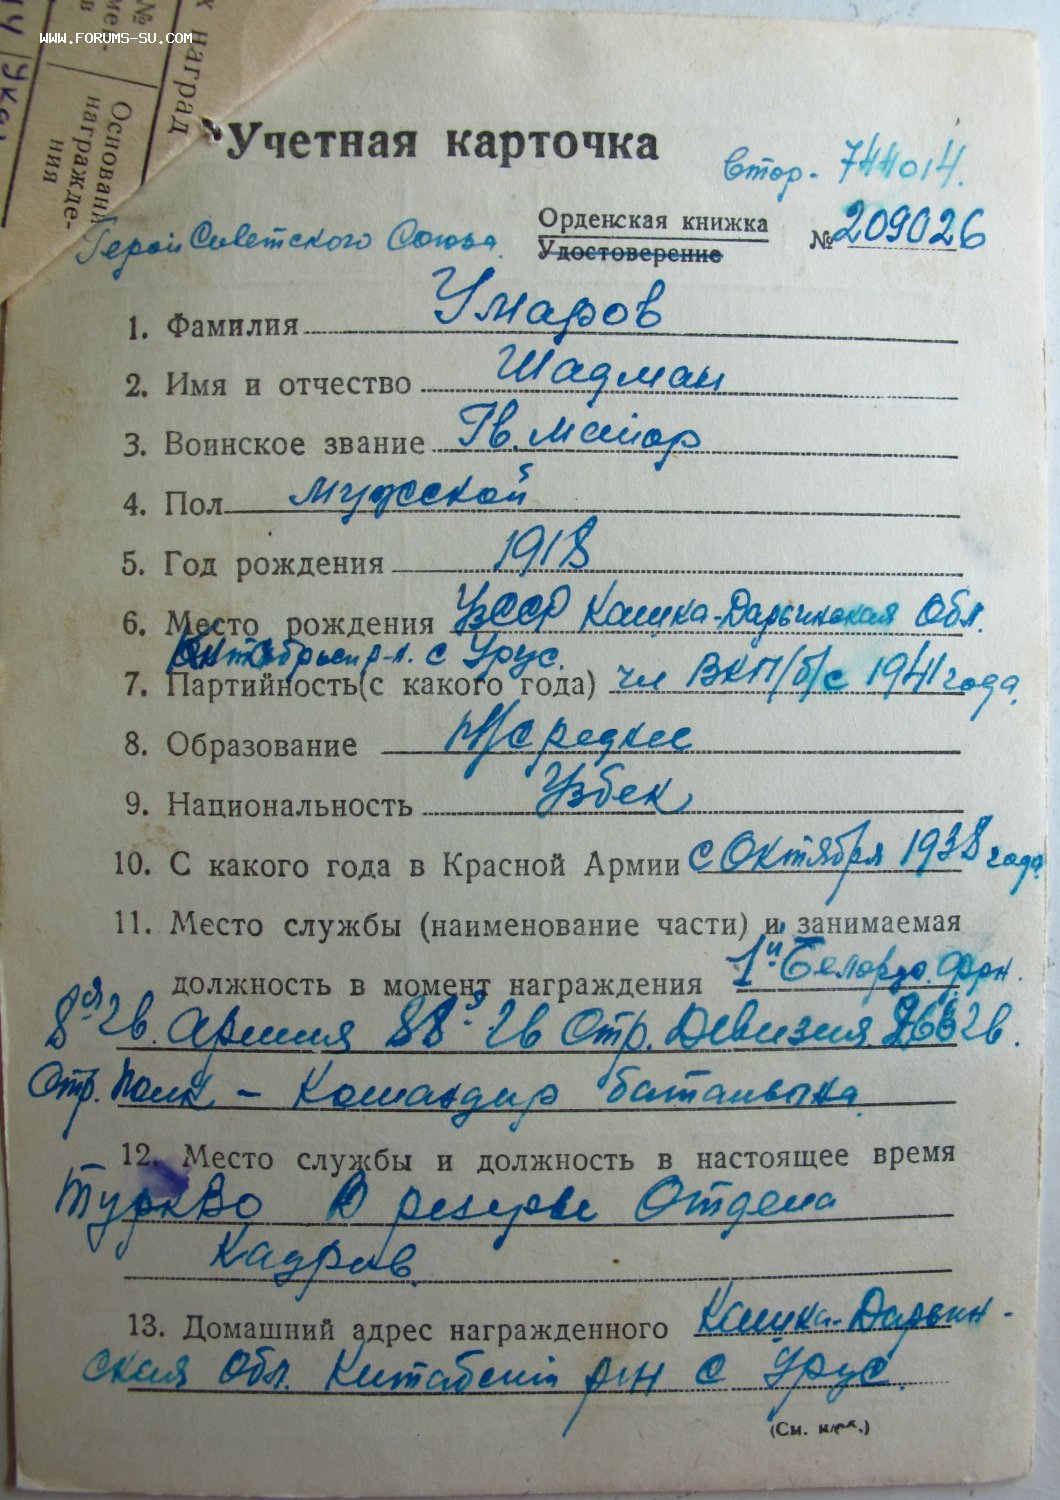 www.forums-su.com
№
наград
Основани
награжде-
ния
Учетная карточка
втор. 744014.
Герой Советского Союза
Орденская книжка
Удостоверение
№ 209026
1. Фамилия Умаров
2. Имя и отчество Шадман
3. Воинское звание Гв. майор
4. Пол мужской
5. Год рождения 1918
6. Место рождения УзССР Кашка-Дарьинская Обл.
с Урус.
7. Партийность (с какого года) чл ВКП/б/ с 1941 года.
8. Образование Н/средне
9. Национальность Узбек
10. С какого года в Красной Армии с Октября 1938 года
11. Место службы (наименование части) и занимаемая
должность в момент награждения 1й Белорус. фрн.
8ая гв. армия 88я гв Стр. Дивизия 266 гв.
Стр. Полк – Командир батальона
12. Место службы и должность в настоящее время
ТуркВо В резерве Отдела
Кадров.
13. Домашний адрес награжденного Кашка-Дарьин-
ская Обл. Китабский р-н с Урус.
(См. н/об.)